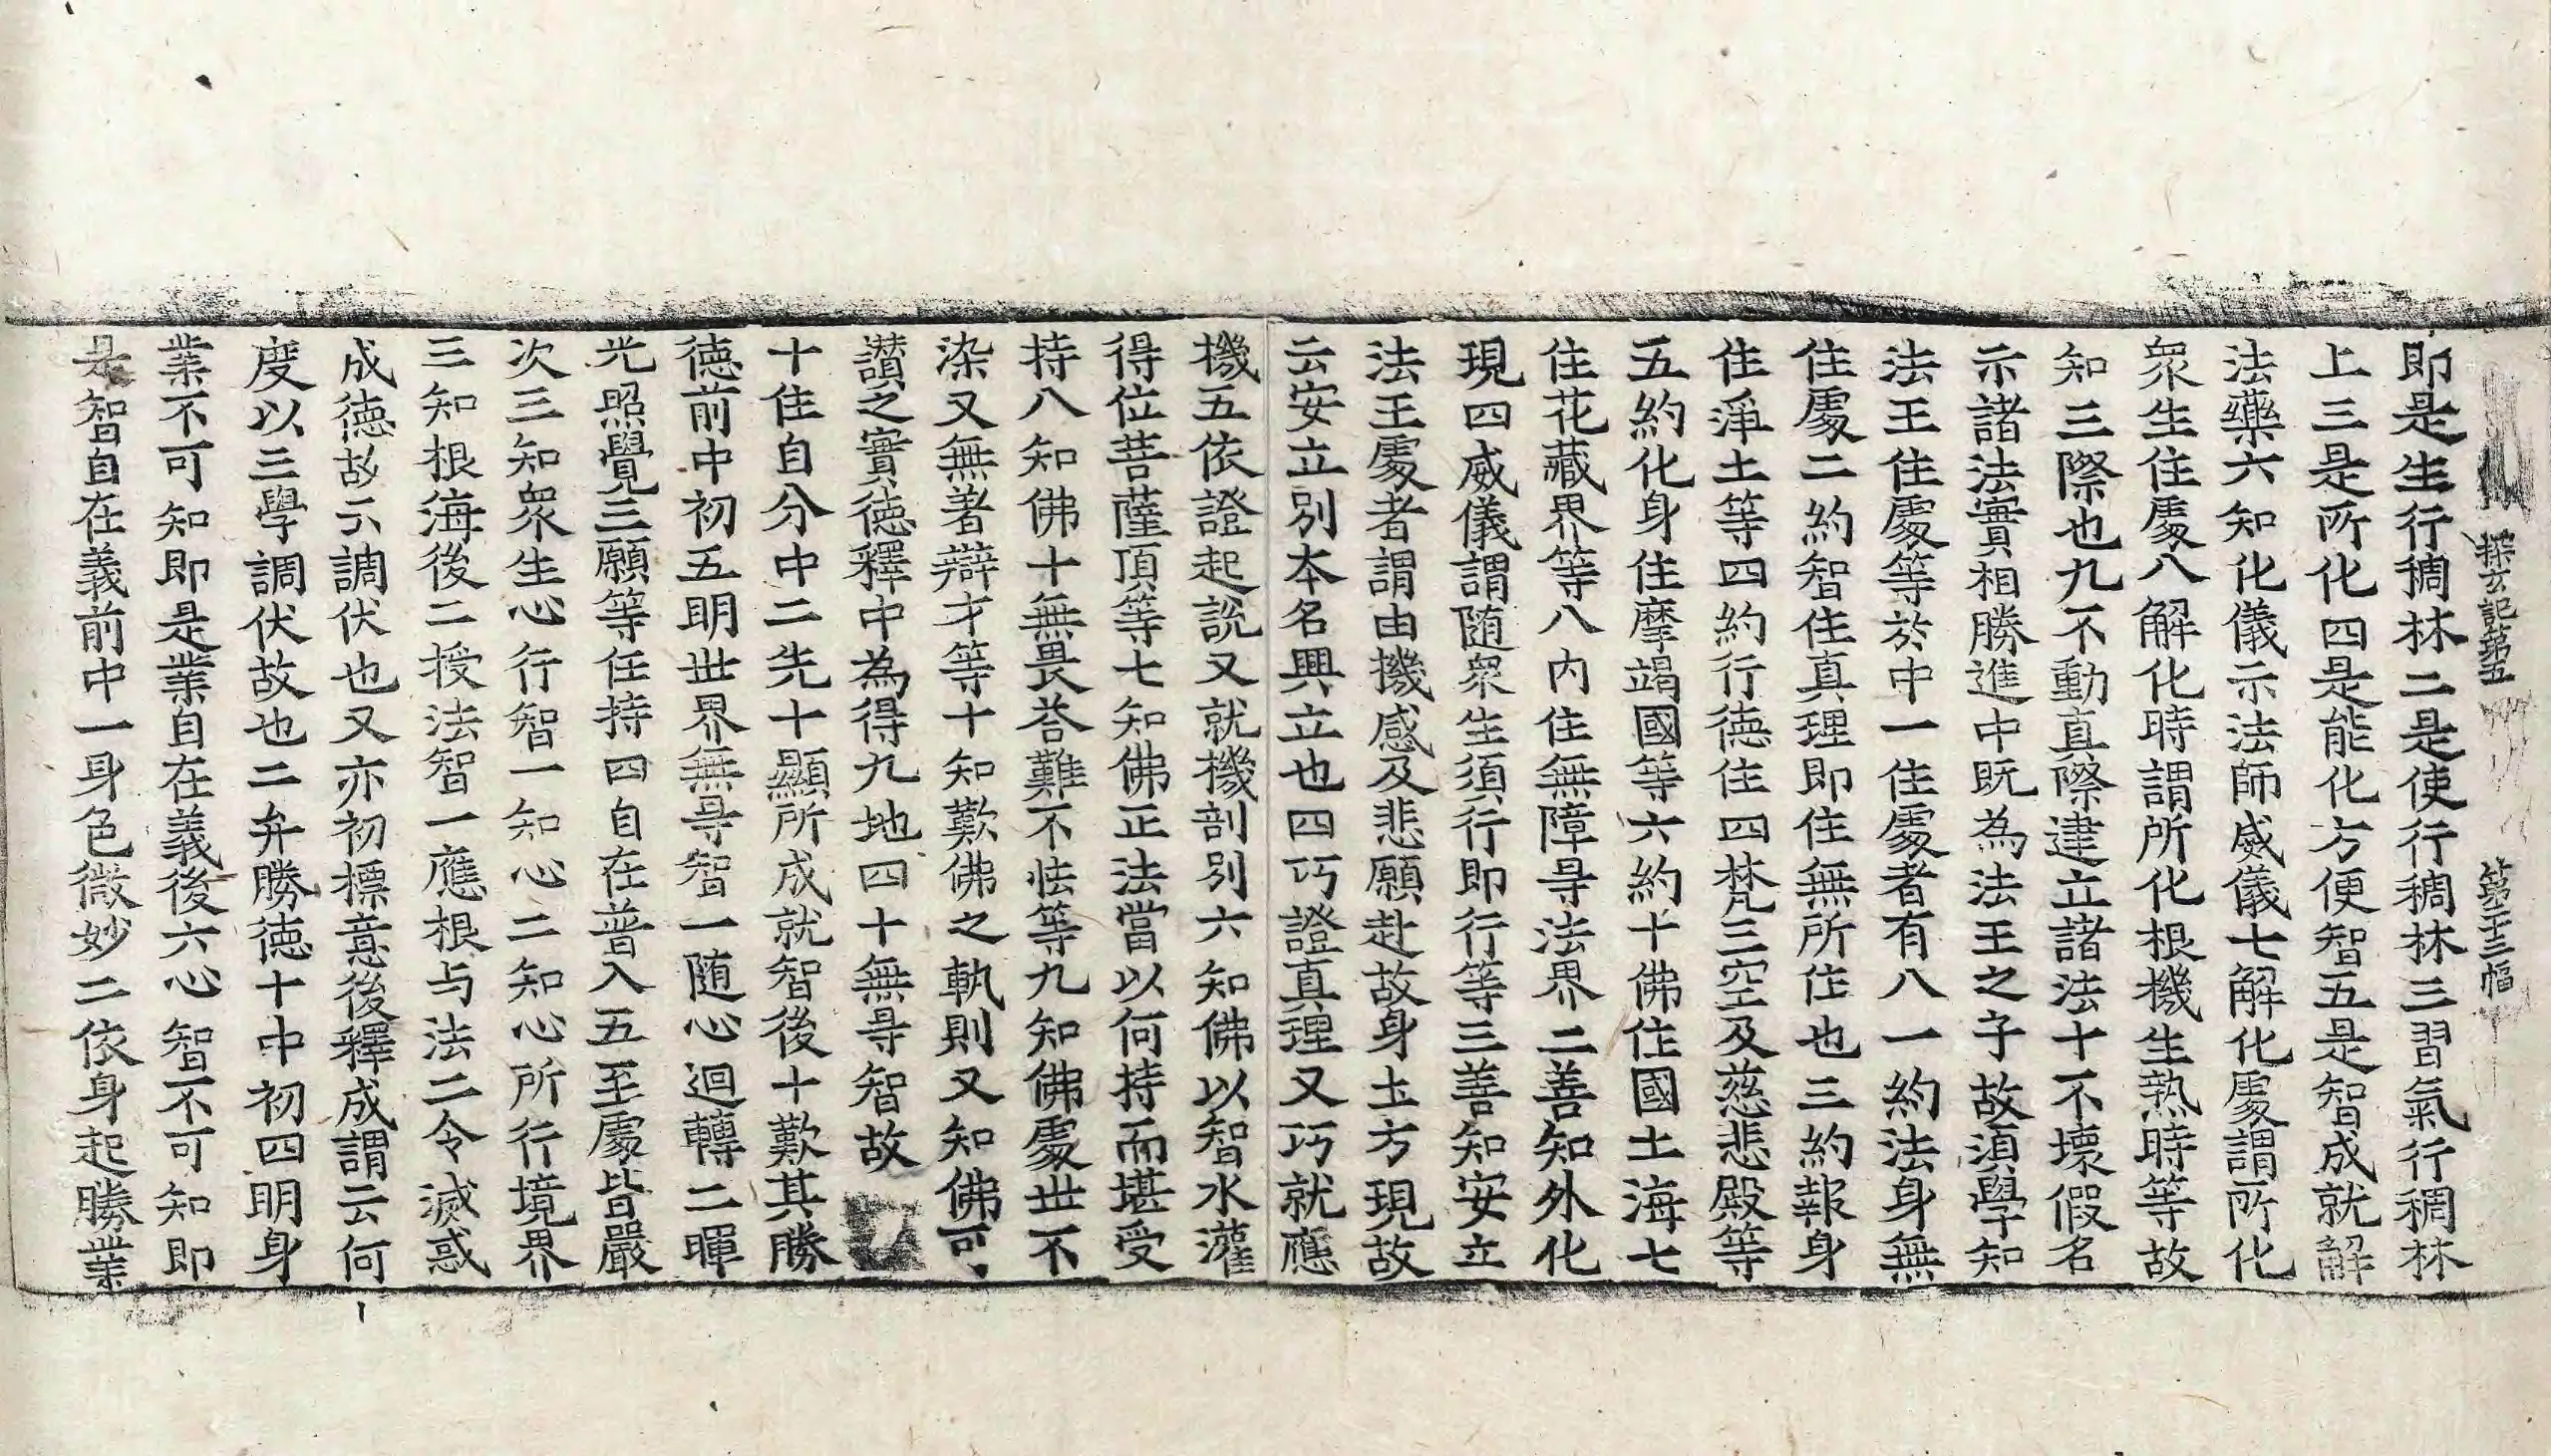 探玄記第五　第二十三幅
即是生行稠林二是使行稠林三習氣行稠林
上三是所化四是能化方便智五是智成就解
法藥六知化儀示法師威儀七解化處謂所化
衆生住處八解化時謂所化根機生熟時等故
知三際也九不動真際建立諸法十不壞假名
示諸法實相勝進中既為法王之子故須學知
法王住處等於中一住處者有八一約法身無
住處二約智住真理即住無所住也三約報身
住淨土等四約行德住四梵三空及慈悲殿等
五約化身住摩竭國等六約十佛住國土海七
住花藏界等八內住無障㝵法界二善知外化
現四威儀謂随衆生須行即行等三善知安立
法王處者謂由機感及悲願赴故身土方現故
云安立別本名興立也四巧證真理又巧就應
機五依證起說又就機剖別六知佛以智水灌
得位菩薩頂等七知佛正法當以何持而堪受
持八知佛十無畏荅難不怯等九知佛處世不
染又無著辯才等十知歎佛之軌則又知佛可
讃之實德釋中為得九地四十無㝵智故
十住自分中二先十顯所成就智後十歎其勝
德前中初五明世界無㝵智一随心迴轉二暉
光照覺三願等任持四自在普入五至處皆嚴
次三知衆生心行智一知心二知心所行境界
三知根海後二授法智一應根与法二令滅惑
成德故云調伏也又亦初標意後釋成謂云何
度以三學調伏故也二弁勝德十中初四明身
業不可知即是業自在義後六心智不可知即
是智自在義前中一身色微妙二依身起勝業